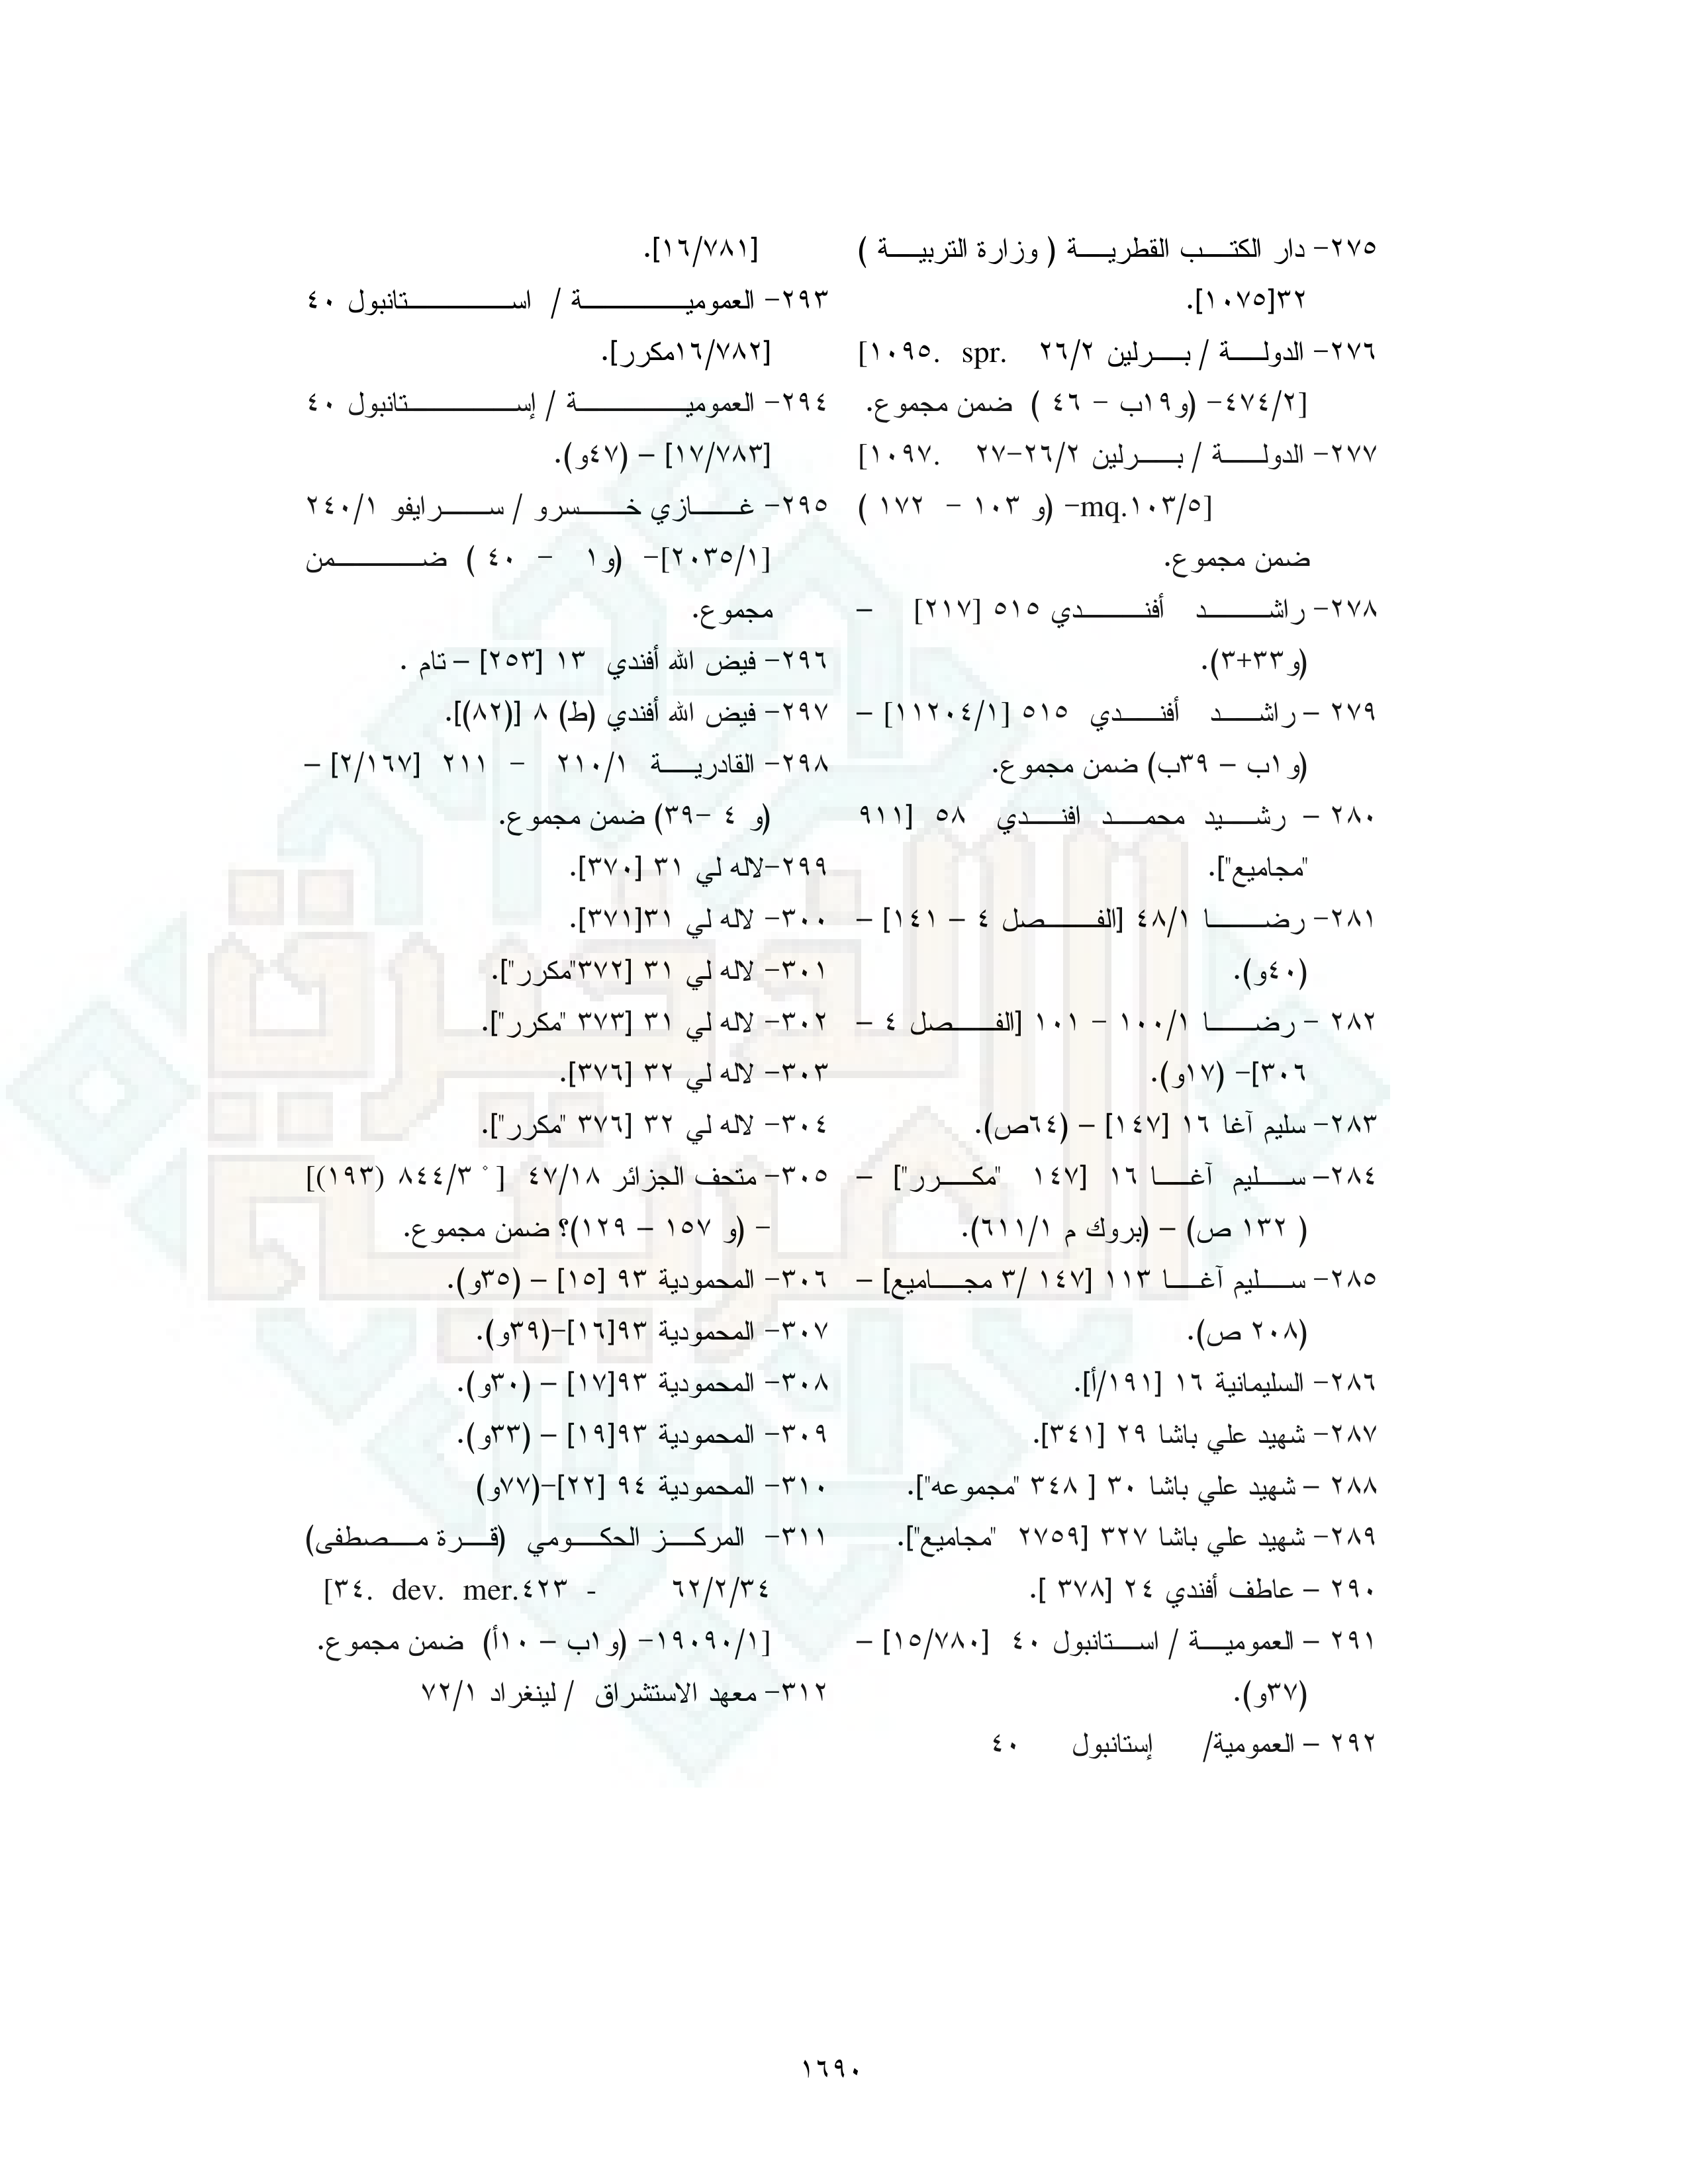 ٢٧٥- دار الكتب القطرية ( وزارة التربية )
٣٢[١٠٧٥].
٢٧٦- الدولة / برلين ٢٦/٢ [١٠٩٥. spr.
٤٧٤/٢]- (و١٩ب - ٤٦ ) ضمن مجموع.
٢٧٧- الدولة / برلين ٢٦/٢-٢٧ [١٠٩٧.
mq.١٠٣/٥]- (و ١٠٣ - ١٧٢ )
ضمن مجموع.
٢٧٨- راشد أفندي ٥١٥ [٢١٧] –
(و٣٣+٣).
٢٧٩ – راشد أفندي ٥١٥ [١١٢٠٤/١] –
(و١ب – ٣٩ب) ضمن مجموع.
٢٨٠ – رشيد محمد افندي ٥٨ [٩١١
"مجاميع"].
٢٨١- رضا ٤٨/١ [الفصل ٤ – ١٤١] –
(٤٠و).
٢٨٢ - رضا ١٠٠/١ - ١٠١ [الفصل ٤ –
٣٠٦]- (١٧و).
٢٨٣- سليم آغا ١٦ [١٤٧] – (٦٤ص).
٢٨٤- سليم آغا ١٦ [١٤٧ "مكرر"] –
( ١٣٢ ص) – (بروك م ٦١١/١).
٢٨٥- سليم آغا ١١٣ [١٤٧ /٣ مجاميع] –
(٢٠٨ ص).
٢٨٦- السليمانية ١٦ [١٩١/أ].
٢٨٧- شهيد علي باشا ٢٩ [٣٤١].
٢٨٨ – شهيد علي باشا ٣٠ [ ٣٤٨ "مجموعه"].
٢٨٩- شهيد علي باشا ٣٢٧ [٢٧٥٩ "مجاميع"].
٢٩٠ – عاطف أفندي ٢٤ [٣٧٨ ].
٢٩١ – العمومية / استانبول ٤٠ [١٥/٧٨٠] –
(٣٧و).
٢٩٢ – العمومية/ إستانبول ٤٠
[١٦/٧٨١].
٢٩٣- العمومية / استانبول ٤٠
[١٦/٧٨٢مكرر].
٢٩٤- العمومية / إستانبول ٤٠
[١٧/٧٨٣] – (٤٧و).
٢٩٥- غازي خسرو / سرايفو ٢٤٠/١
[٢٠٣٥/١]- (و١ - ٤٠ ) ضمن
مجموع.
٢٩٦- فيض الله أفندي ١٣ [٢٥٣] – تام .
٢٩٧- فيض الله أفندي (ط) ٨ [(٨٢)].
٢٩٨- القادرية ٢١٠/١ - ٢١١ [٢/١٦٧] –
(و ٤ -٣٩) ضمن مجموع.
٢٩٩-لاله لي ٣١ [٣٧٠].
٣٠٠- لاله لي ٣١[٣٧١].
٣٠١- لاله لي ٣١ [٣٧٢"مكرر"].
٣٠٢- لاله لي ٣١ [٣٧٣ "مكرر"].
٣٠٣- لاله لي ٣٢ [٣٧٦].
٣٠٤- لاله لي ٣٢ [٣٧٦ "مكرر"].
٣٠٥- متحف الجزائر ٤٧/١٨ [ ° ٨٤٤/٣ (١٩٣)]
- (و ١٥٧ – ١٢٩)؟ ضمن مجموع.
٣٠٦- المحمودية ٩٣ [١٥] – (٣٥و).
٣٠٧- المحمودية ٩٣[١٦]-(٣٩و).
٣٠٨- المحمودية ٩٣[١٧] – (٣٠و).
٣٠٩- المحمودية ٩٣[١٩] – (٣٣و).
٣١٠- المحمودية ٩٤ [٢٢]-(٧٧و)
٣١١- المركز الحكومي (قرة مصطفى)
٦٢/٢/٣٤ [٣٤. dev. mer.٤٢٣ -
١٩٠٩٠/١]- (و١ب – ١٠أ) ضمن مجموع.
٣١٢- معهد الاستشراق / لينغراد ٧٢/١
١٦٩٠